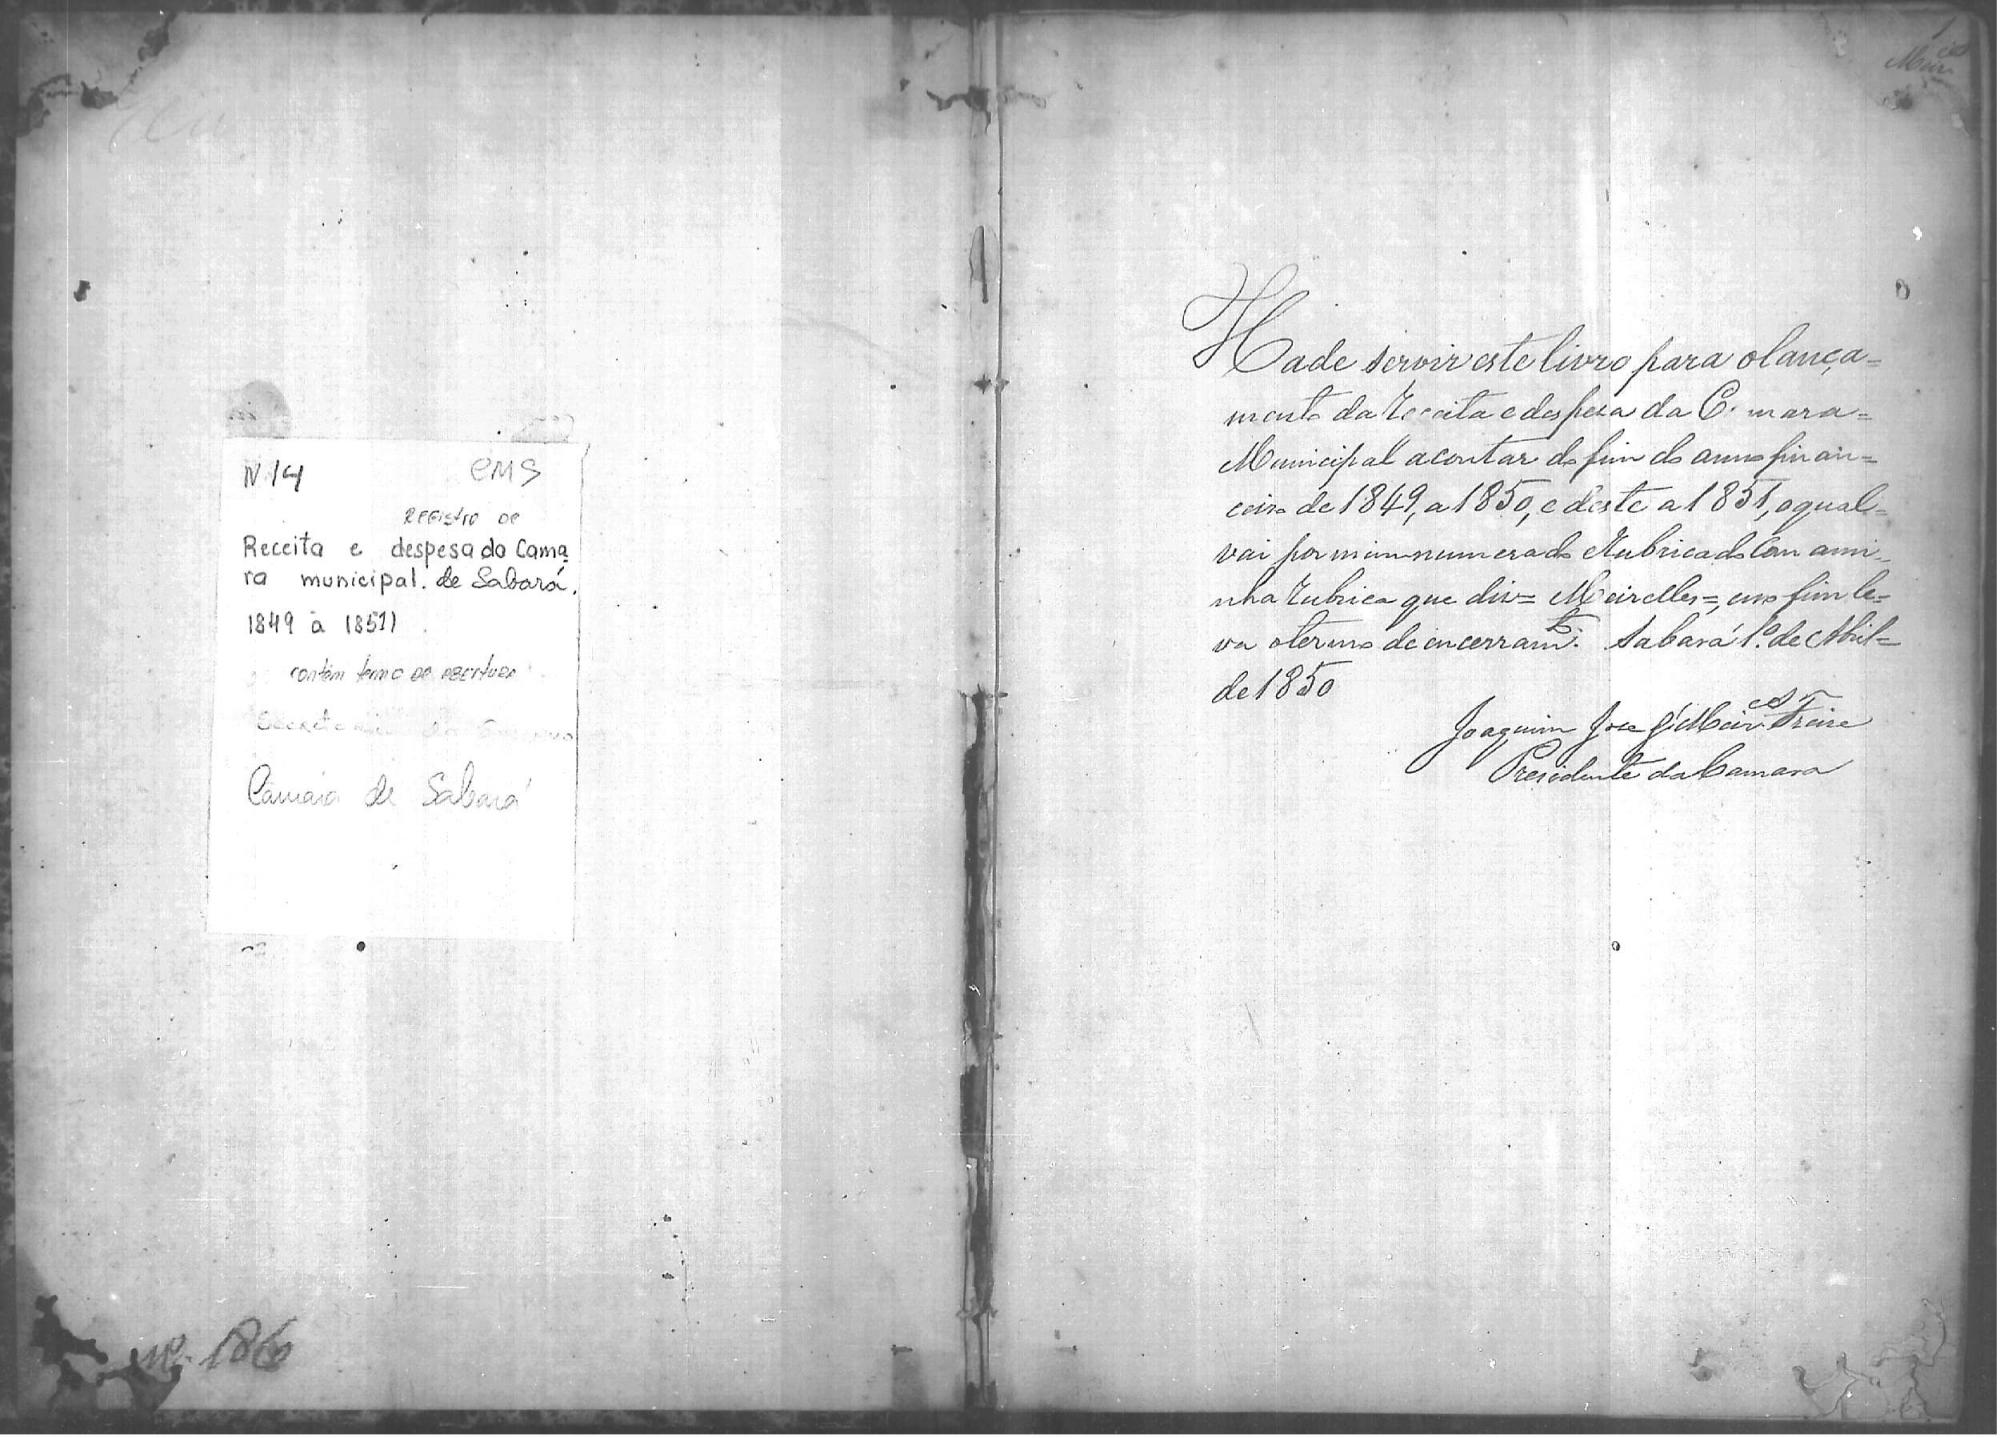 N 14 CMS
REGistro DE
Receita e despesa da Cama
ra municipal. de Sabará.
1849 à 1851)
contém termo de abertura
Câmara de Sabará
nº. 186
1
Meir.es
Hade servir este livro para olança=
mento da Receita e despesa da Camara=
Municipal acontar do fim do anno finan=
ceiro de 1849, a 1850, e deste a 1851, oqual=
vai por mim numerado eRubricado Com ami-
nha Rubrica que diz= Meirelles=, eno fim le=
va otermo de encerramto. Sabará 1º. de Abril=
de 1850
Joaquim Jose Meir.es Freire
Presidente da Camara